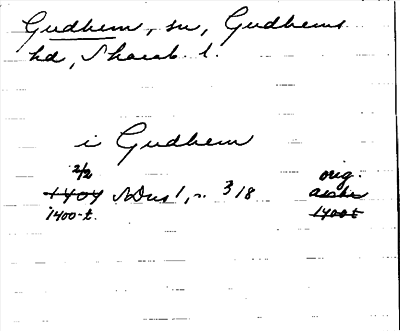 Gudhem, sn, Gudhems
hd, Skarab. l.
i Gudhem
2/2 orig.
1404 SDns 1, n. 318 avskr
1400-t. 1400t